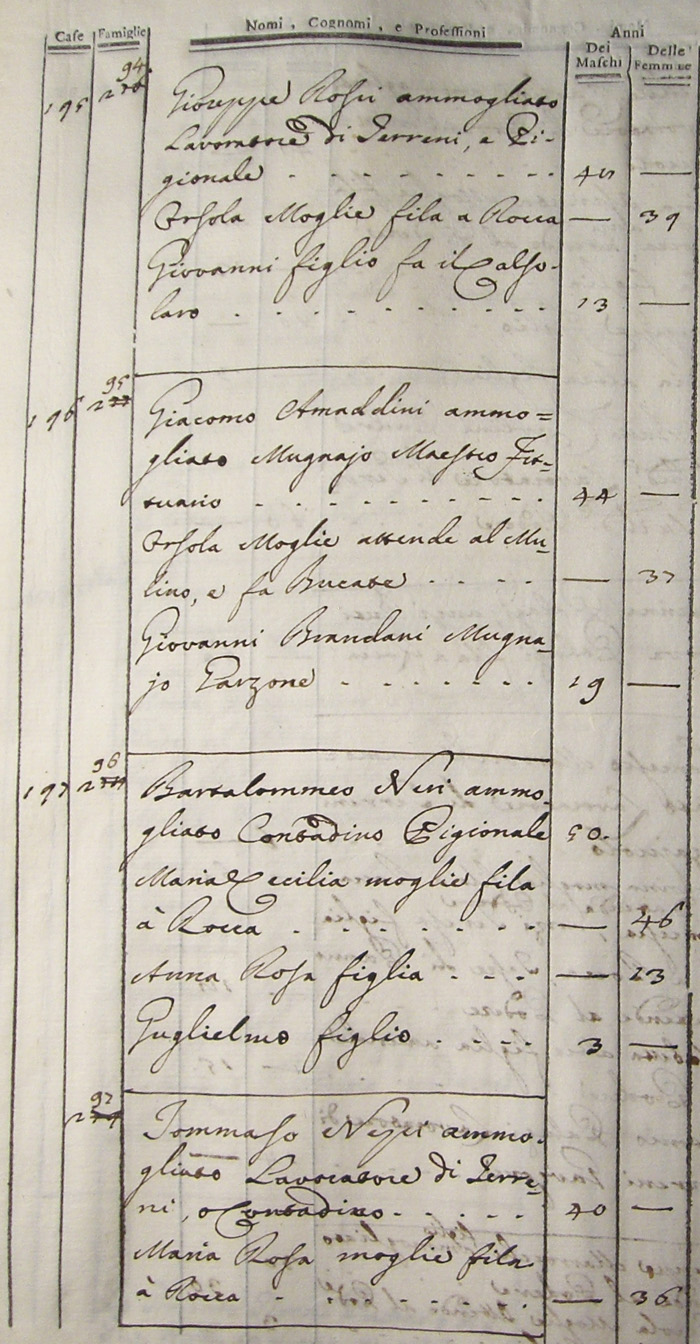 Case Famiglie Nomi, Cognomi, e Professioni Anni
Dei Maschi Delle Femmine
94
195 Giuseppe Rossi ammogliato
Lavoratore di Terreni, e Pi-
gionale - - - - - - - - 45 —
Orsola Moglie fila a Rocca — 39
Giovanni figlio fa il Calso-
laro - - - - - - - - 13 —
95
196 Giacomo Amaddini ammo=
gliato Mugnajo Maestro Fit-
tuario - - - - - - - - 44 —
Orsola Moglie attende al Mu-
lino, e fa Bucate - - - - — 37
Giovanni Brandani Mugna-
jo Garzone - - - - - - - 19 —
96
197 Bartalommeo Neri ammo-
gliato Contadino Pigionale 50.
Maria Cecilia moglie fila
à Rocca - - - - - - - — 46
Anna Rosa figlia - - - — 23
Guglielmo figlio - - - - 3 —
97
Tommaso ammo-
gliato Lavoratore di Terre-
ni, o Contadino - - - - - 40 —
Maria Rosa moglie fila
à Rocca - - - - - - — 36